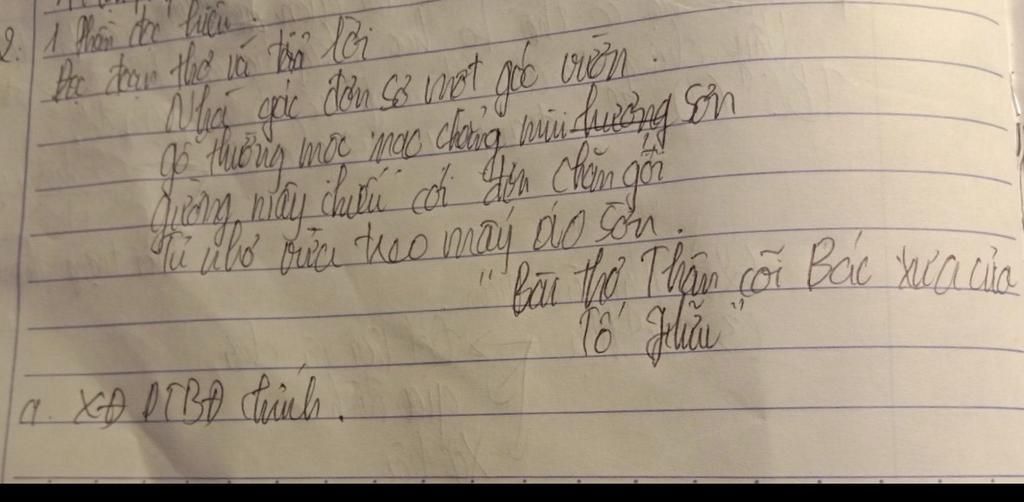 2. 1 Phần đọc hiểu.
Đọc đoạn thơ và trả lời
Nhà gác đơn sơ một góc vườn.
gỗ thường mộc mạc chẳng mùi hương sơn
giường mây chiếu cói đơn chăn gối
Tủ nhỏ vừa treo mấy áo sờn.
"Bài thơ Thăm cõi Bác xưa của
Tố Hữu"
a. XĐ PTBĐ chính.